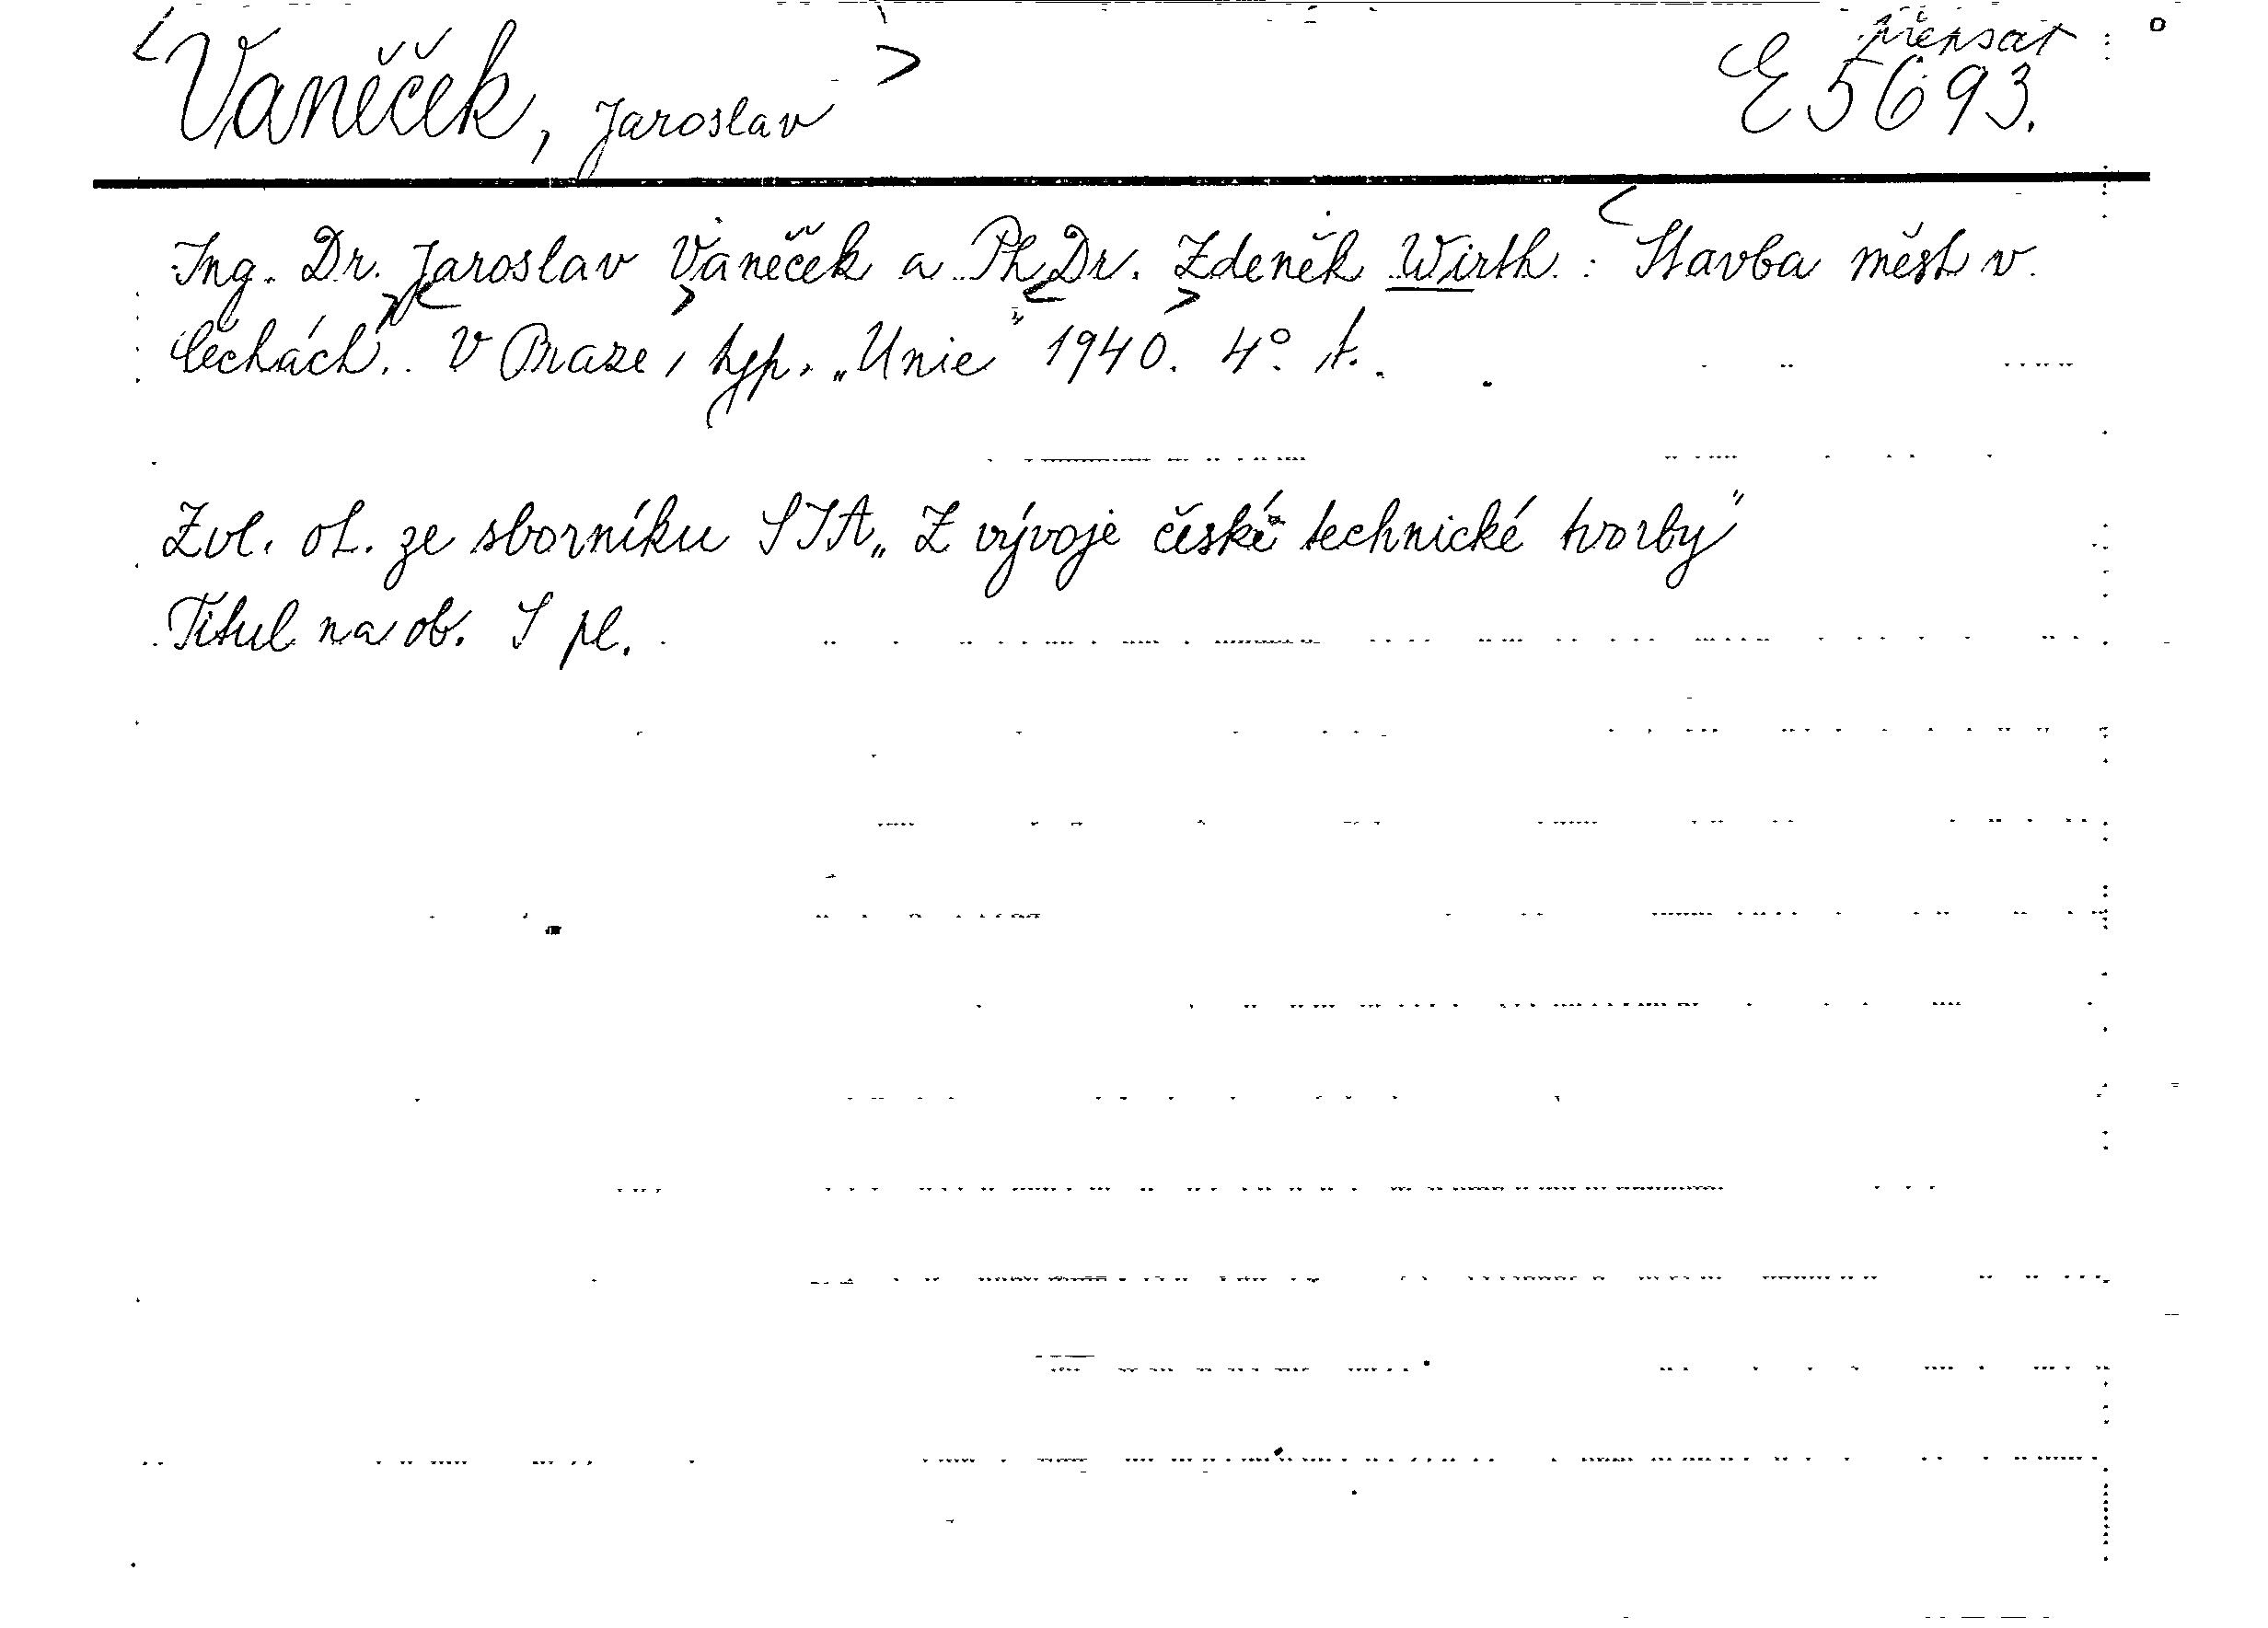 přepsat
<Vaněček, Jaroslav> E 5693.
Ing. Dr. Jaroslav Vaněček a PhDr. Zdeněk Wirth: <Stavba měst v
Čechách.> <V Praze, typ. „Unie“ 1940. 4°.
Zvl. ot. ze sborníku SIA „Z vývoje české technické tvorby“
Titul na ob. S pl.